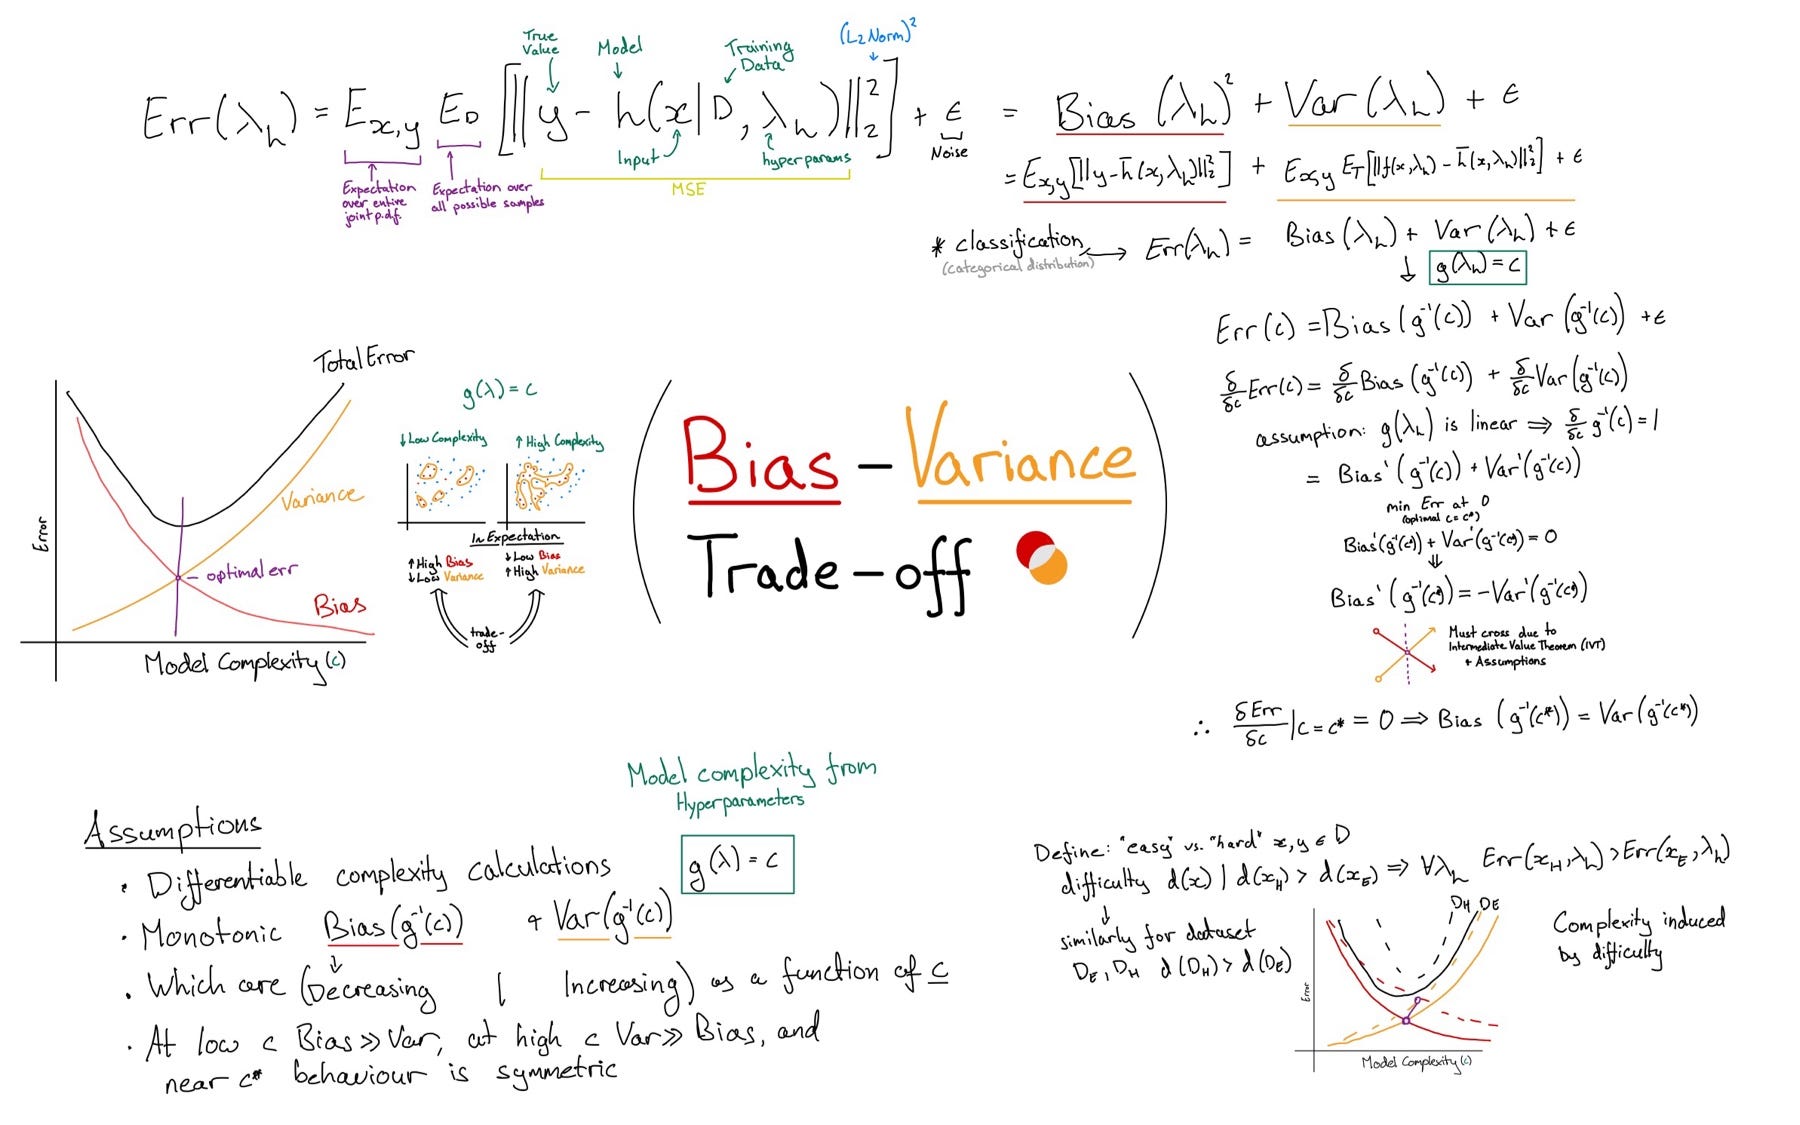 True Value
Model
Training Data
(L₂ Norm)²
Err(λₕ) = E_{x,y} E_D [‖y − h(x|D, λₕ)‖₂²] + ε = Bias(λₕ)² + Var(λₕ) + ε
Input
hyperparams
Noise
MSE
Expectation over entire joint p.d.f.
Expectation over all possible samples
= E_{x,y}[‖y − h̄(x, λₕ)‖₂²] + E_{x,y} E_T[‖f(x, λₕ) − h̄(x, λₕ)‖₂²] + ε
* classification → Err(λₕ) = Bias(λₕ) + Var(λₕ) + ε
(categorical distribution)
↓ g(λₕ) = c
Err(c) = Bias(g⁻¹(c)) + Var(g⁻¹(c)) + ε
δ/δc Err(c) = δ/δc Bias(g⁻¹(c)) + δ/δc Var(g⁻¹(c))
assumption: g(λₕ) is linear ⇒ δ/δc g⁻¹(c) = 1
= Bias'(g⁻¹(c)) + Var'(g⁻¹(c))
min Err at 0
(optimal c = c*)
Bias'(g⁻¹(c*)) + Var'(g⁻¹(c*)) = 0
⇓
Bias'(g⁻¹(c*)) = −Var'(g⁻¹(c*))
Must cross due to
Intermediate Value Theorem (IVT)
+ Assumptions
∴ δErr/δc |c=c* = 0 ⇒ Bias(g⁻¹(c*)) = Var(g⁻¹(c*))
Total Error
Variance
optimal err
Bias
Error
Model Complexity (c)
g(λ) = c
↓ Low Complexity
↑ High Complexity
In Expectation
↑ High Bias
↓ Low Variance
↓ Low Bias
↑ High Variance
trade-off
Bias – Variance
Trade-off
Model complexity from
Hyperparameters
g(λ) = c
Assumptions
• Differentiable complexity calculations
• Monotonic Bias(g⁻¹(c)) + Var(g⁻¹(c))
• Which are (Decreasing | Increasing) as a function of c
• At low c Bias ≫ Var, at high c Var ≫ Bias, and
near c* behaviour is symmetric
Define: "easy" vs. "hard" x, y ∈ D
difficulty d(x) | d(x_H) > d(x_E) ⇒ ∀λₕ Err(x_H, λₕ) > Err(x_E, λₕ)
↓
similarly for dataset
D_E, D_H d(D_H) > d(D_E)
D_H D_E
Error
Model Complexity (c)
Complexity induced
by difficulty